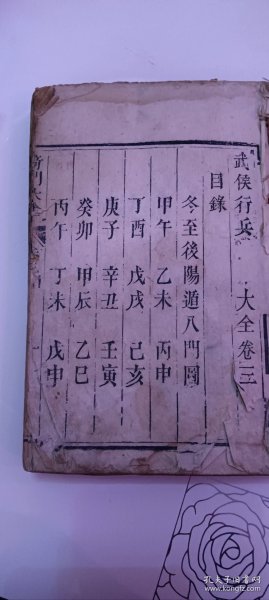 武侯行兵 大全卷三
目錄
冬至後陽遁八門圖
甲午 乙未 丙申
丁酉 戊戌 己亥
庚子 辛丑 壬寅
癸卯 甲辰 乙巳
丙午 丁未 戊申
奇門大全
孔夫子旧书网